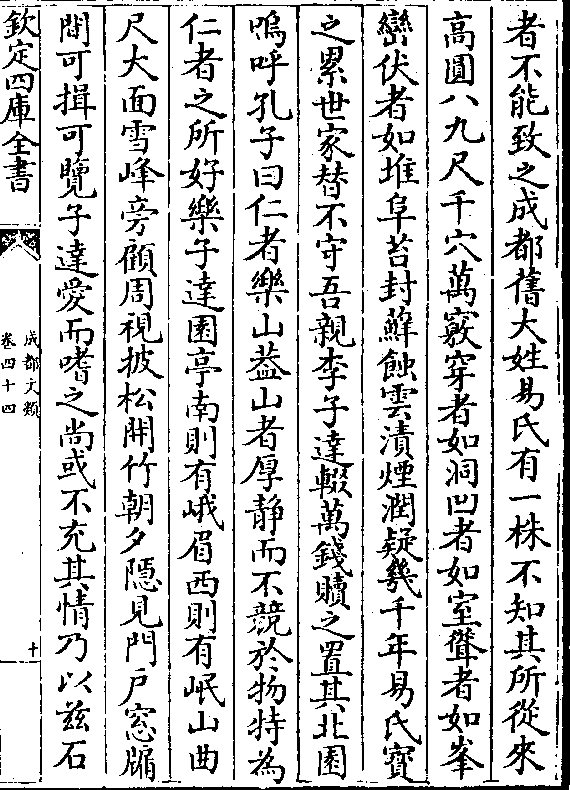 者不能致之成都舊大姓易氏有一株不知其所從來
高圓八九尺千穴萬竅穿者如洞凹者如室聳者如峯
巒伏者如堆阜苔封蘚蝕雲漬煙潤疑幾千年易氏寳
之累世家替不守吾親李子達輟萬錢贖之置其北園
嗚呼孔子曰仁者樂山葢山者厚静而不競於物特為
仁者之所好樂子達園亭南則有峨眉西則有岷山曲
尺大面雪峰旁顧周視披松開竹朝夕隱見門戶窓牖
間可揖可覽子達愛而嗜之尚或不充其情乃以兹石
欽定四庫全書
成都文類
卷四十四
十